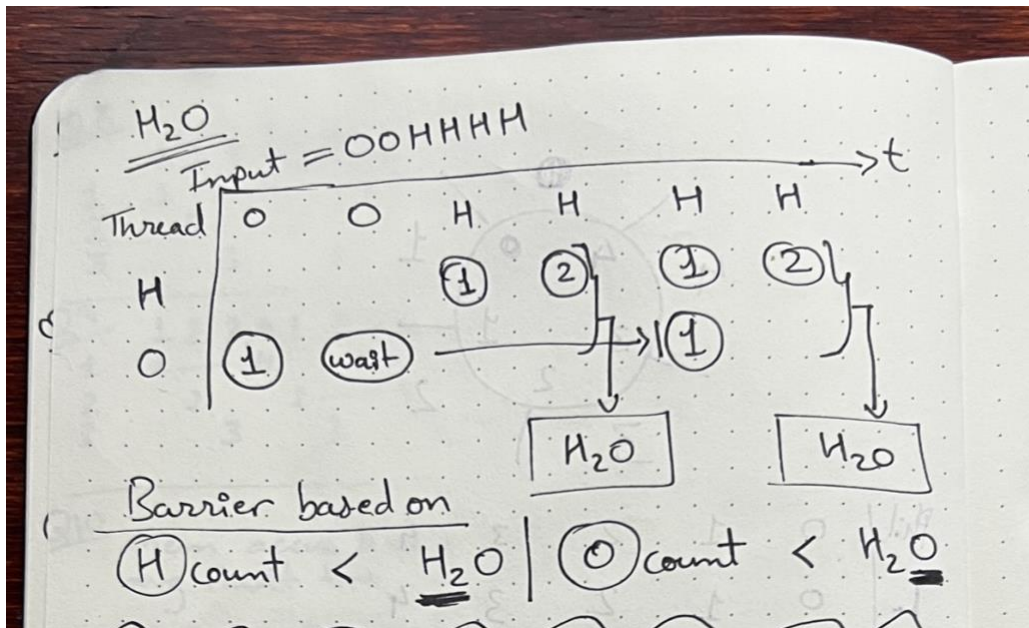 H₂O
Input = OOHHHH
t
Thread O O H H H H
H 1 2 1 2
O 1 wait 1
H₂O H₂O
Barrier based on
H count < H₂O | O count < H₂O